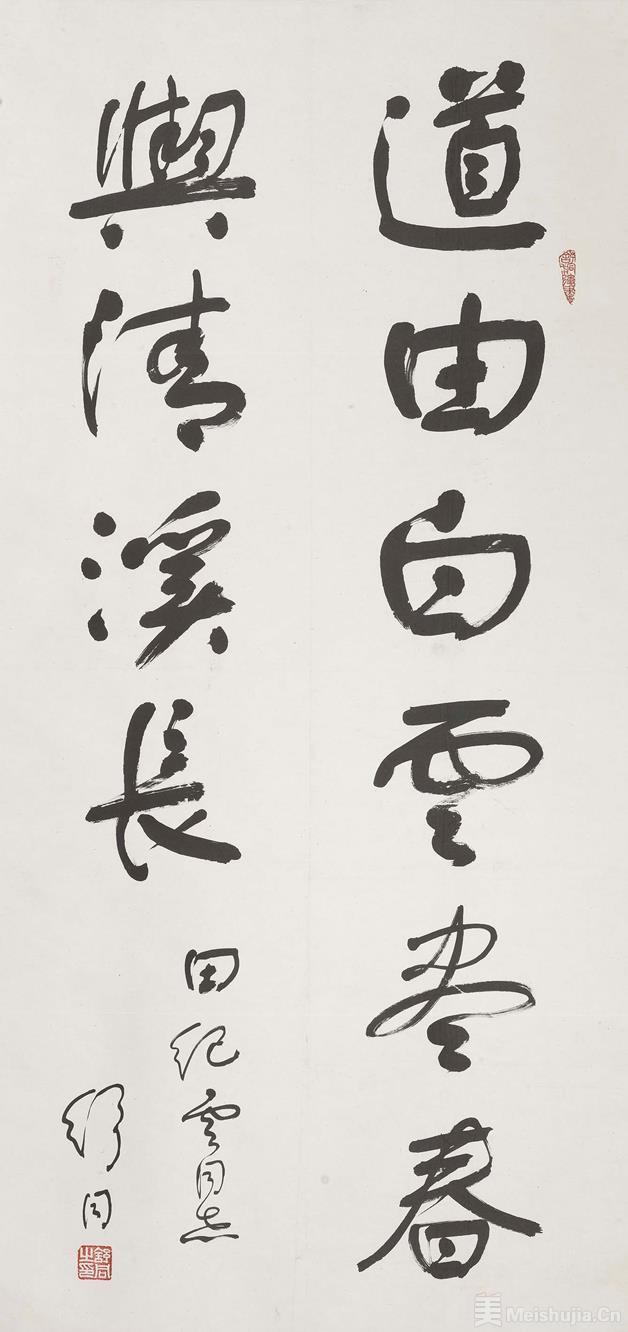 道由白雲盡春
與清溪長
田紀雲同志
舒同
舒同之印
Meishujia.Cn